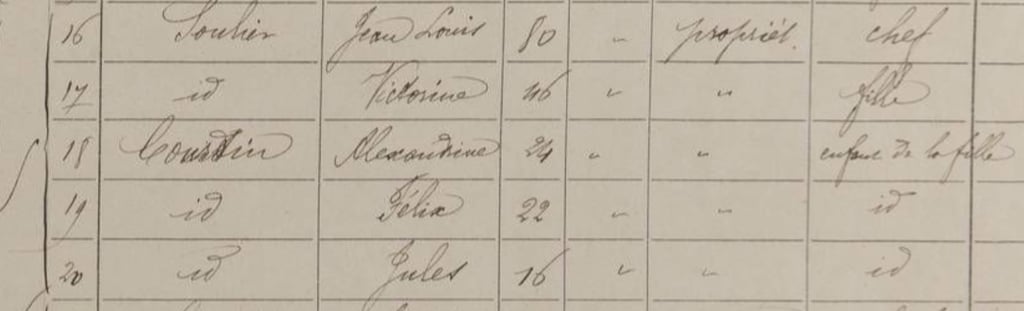 16 Soulier Jean Louis 80 " propriét. chef
17 id Victorine 46 " " fille
18 Courtin Alexandrine 24 " " enfant de la fille
19 id Félix 22 " " id
20 id Jules 16 " " id